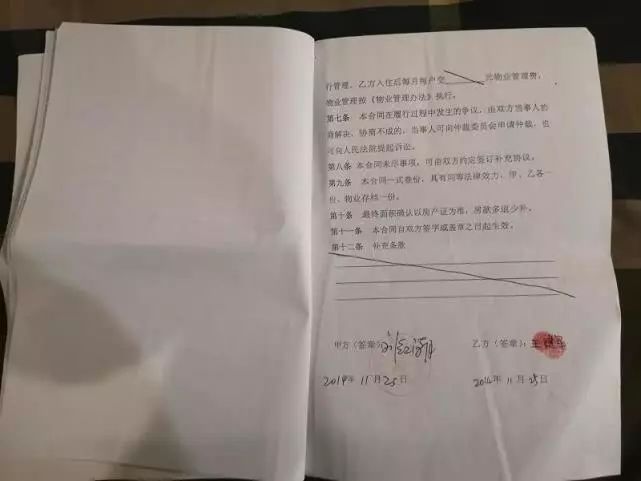 行管理、乙方入住后每月每户交 元物业管理费,
物业管理按《物业管理办法》执行。
第七条 本合同在履行过程中发生的争议,由双方当事人协
商解决,协商不成的,当事人可向仲裁委员会申请仲裁,也
可向人民法院提起诉讼。
第八条 本合同未尽事项,可由双方约定签订补充协议。
第九条 本合同一式叁份,具有同等法律效力,甲、乙各一
份,物业存档一份。
第十条 最终面积确认以房产证为准,房款多退少补。
第十一条 本合同自双方签字或盖章之日起生效。
第十二条 补充条款
甲方(签章): 乙方(签章):
2014年 11月25日 2014年 11月25日